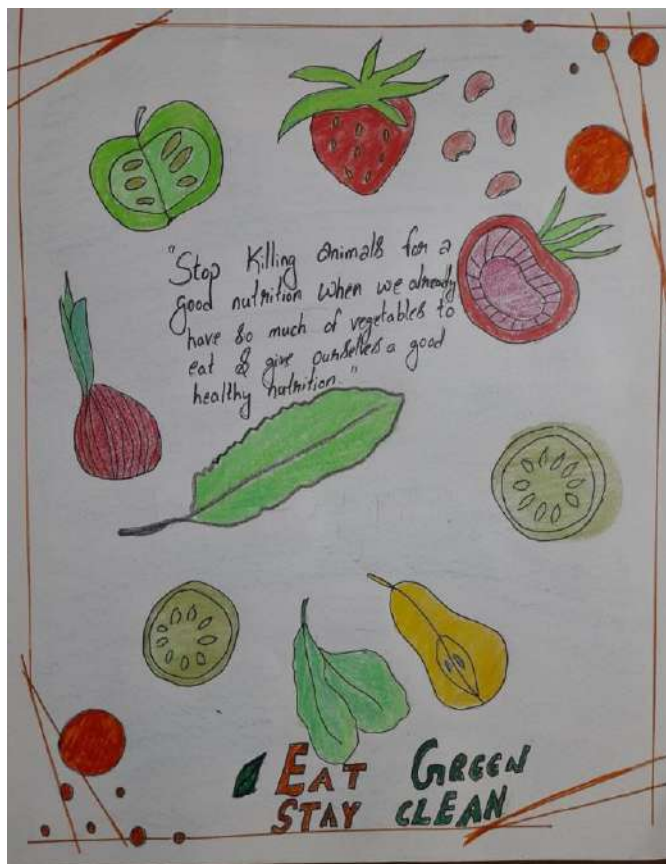 "Stop Killing animals for a
good nutrition when we already
have so much of vegetables to
eat & give ourselves a good
healthy nutrition."
EAT GREEN
STAY CLEAN